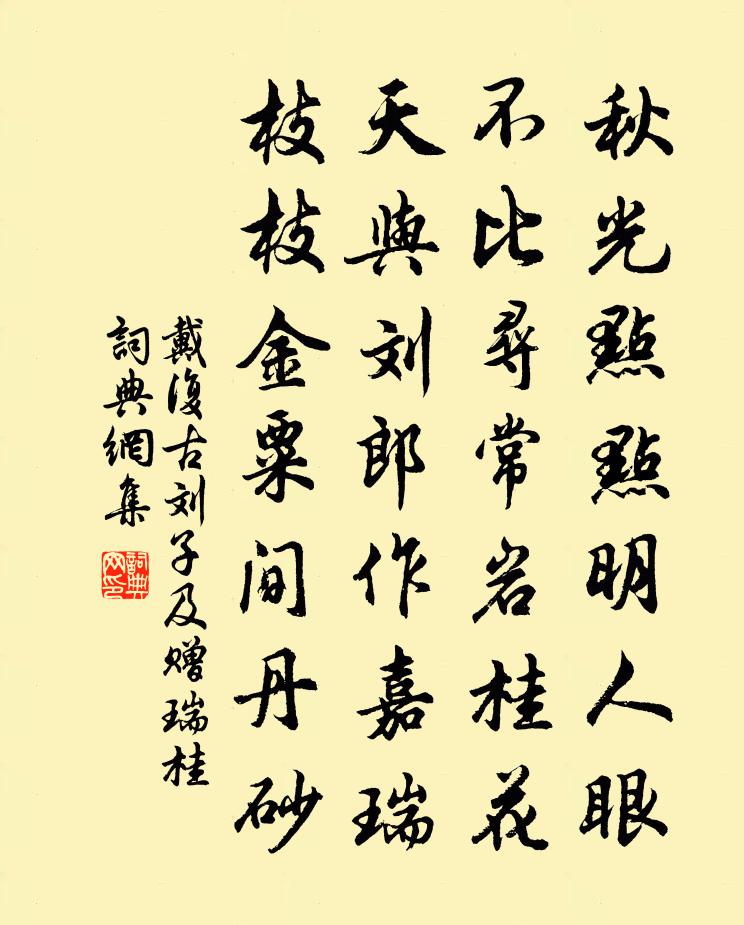 秋光點點明人眼
不比尋常岩桂花
天與刘郎作嘉瑞
枝枝金粟间丹砂
戴復古刘子及赠瑞桂
詞典網集
詞典网印